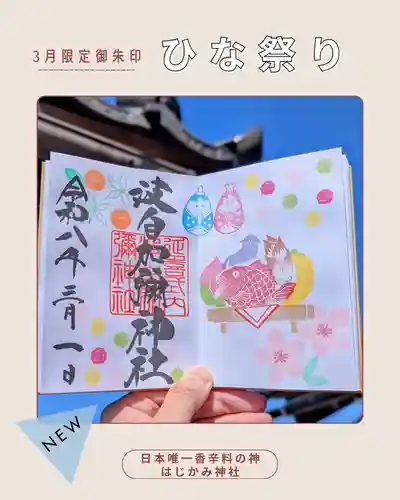 3月限定御朱印
ひな祭り
令和八年三月一日
波自加彌神社
延喜式内
彌神社
NEW
日本唯一香辛料の神
はじかみ神社